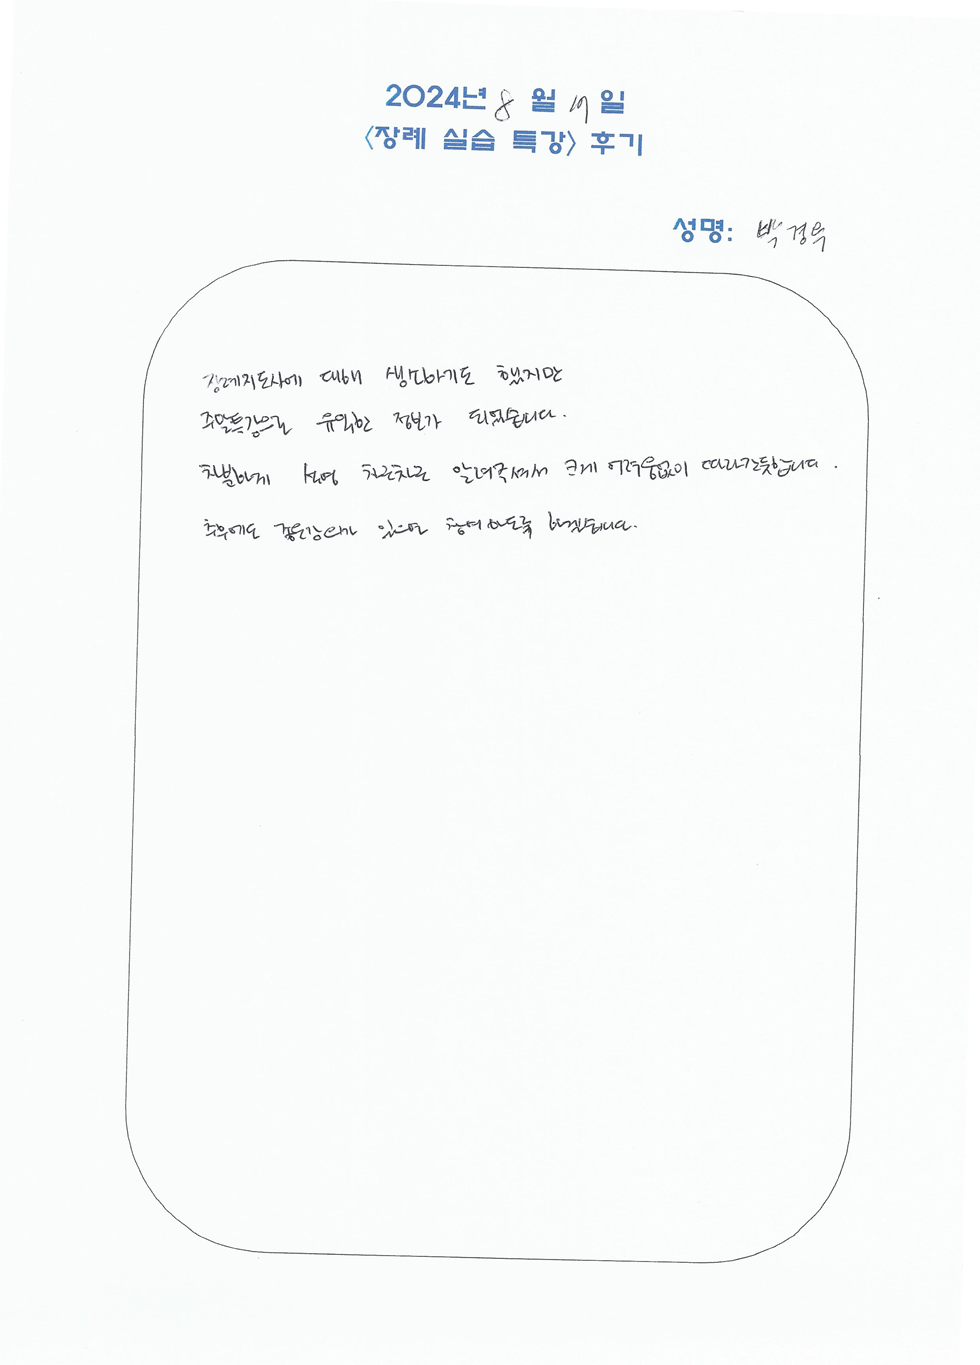 2024년 8월 19일
<장례 실습 특강> 후기
성명: 박경욱
장례지도사에 대해 생소하기도 했지만
주말특강으로 유익한 정보가 되었습니다.
차분하게 설명 차근차근 알려주셔서 크게 어려움없이 따라간듯합니다.
추후에도 좋은강의가 있으면 참여하도록 하겠습니다.